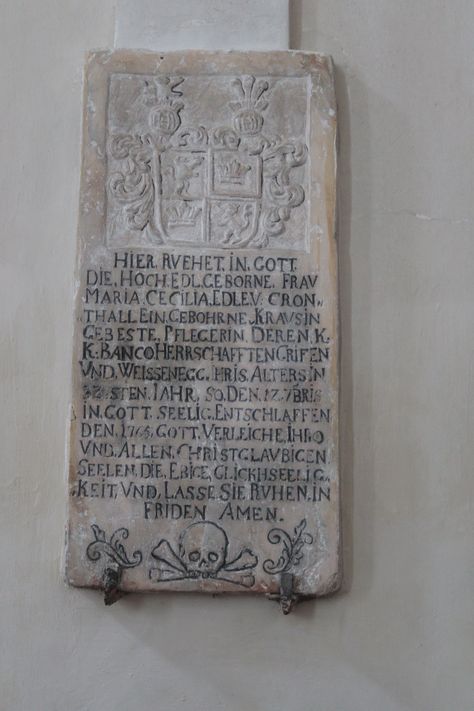 HIER RVEHET. IN. GOTT
DIE, HOCH. EDL. GEBORNE. FRAV
MARIA. CECILIA. EDLE. V. CRON=
THALL. EIN. GEBOHRNE. KRAVS. IN
GEBESTE. PFLEGERIN. DEREN. K.
K. BANCO HERRSCHAFFTEN GRIFEN
VND. WEISSENEGG. IHRIS. ALTERS IN
STEN. IAHR. SO. DEN. 12. 7BRIS
IN. GOTT. SEELIG. ENTSCHLAFFEN
DEN. 1765. GOTT. VERLEICHE. IHRO
VND. ALLEN. CHRISTGLAVBIGEN
SEELEN. DIE. EBIGE. GLICKHSEELIG.
KEIT. VND. LASSE SIE RVHEN. IN
FRIDEN AMEN.